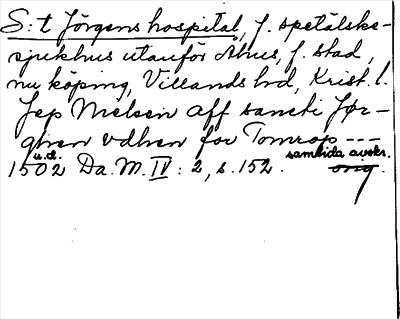 S:t Jörgens hospital, f. spetälske-
sjukhus utanför Åhus, f. stad,
nu köping, Villands hd, Krist. l.
Jep Nielsen aff sancte Jør-
ghen vdhen for Tomrop ---
u.d. samtida avskr.
1502 Da. M. IV: 2, s. 152. orig.